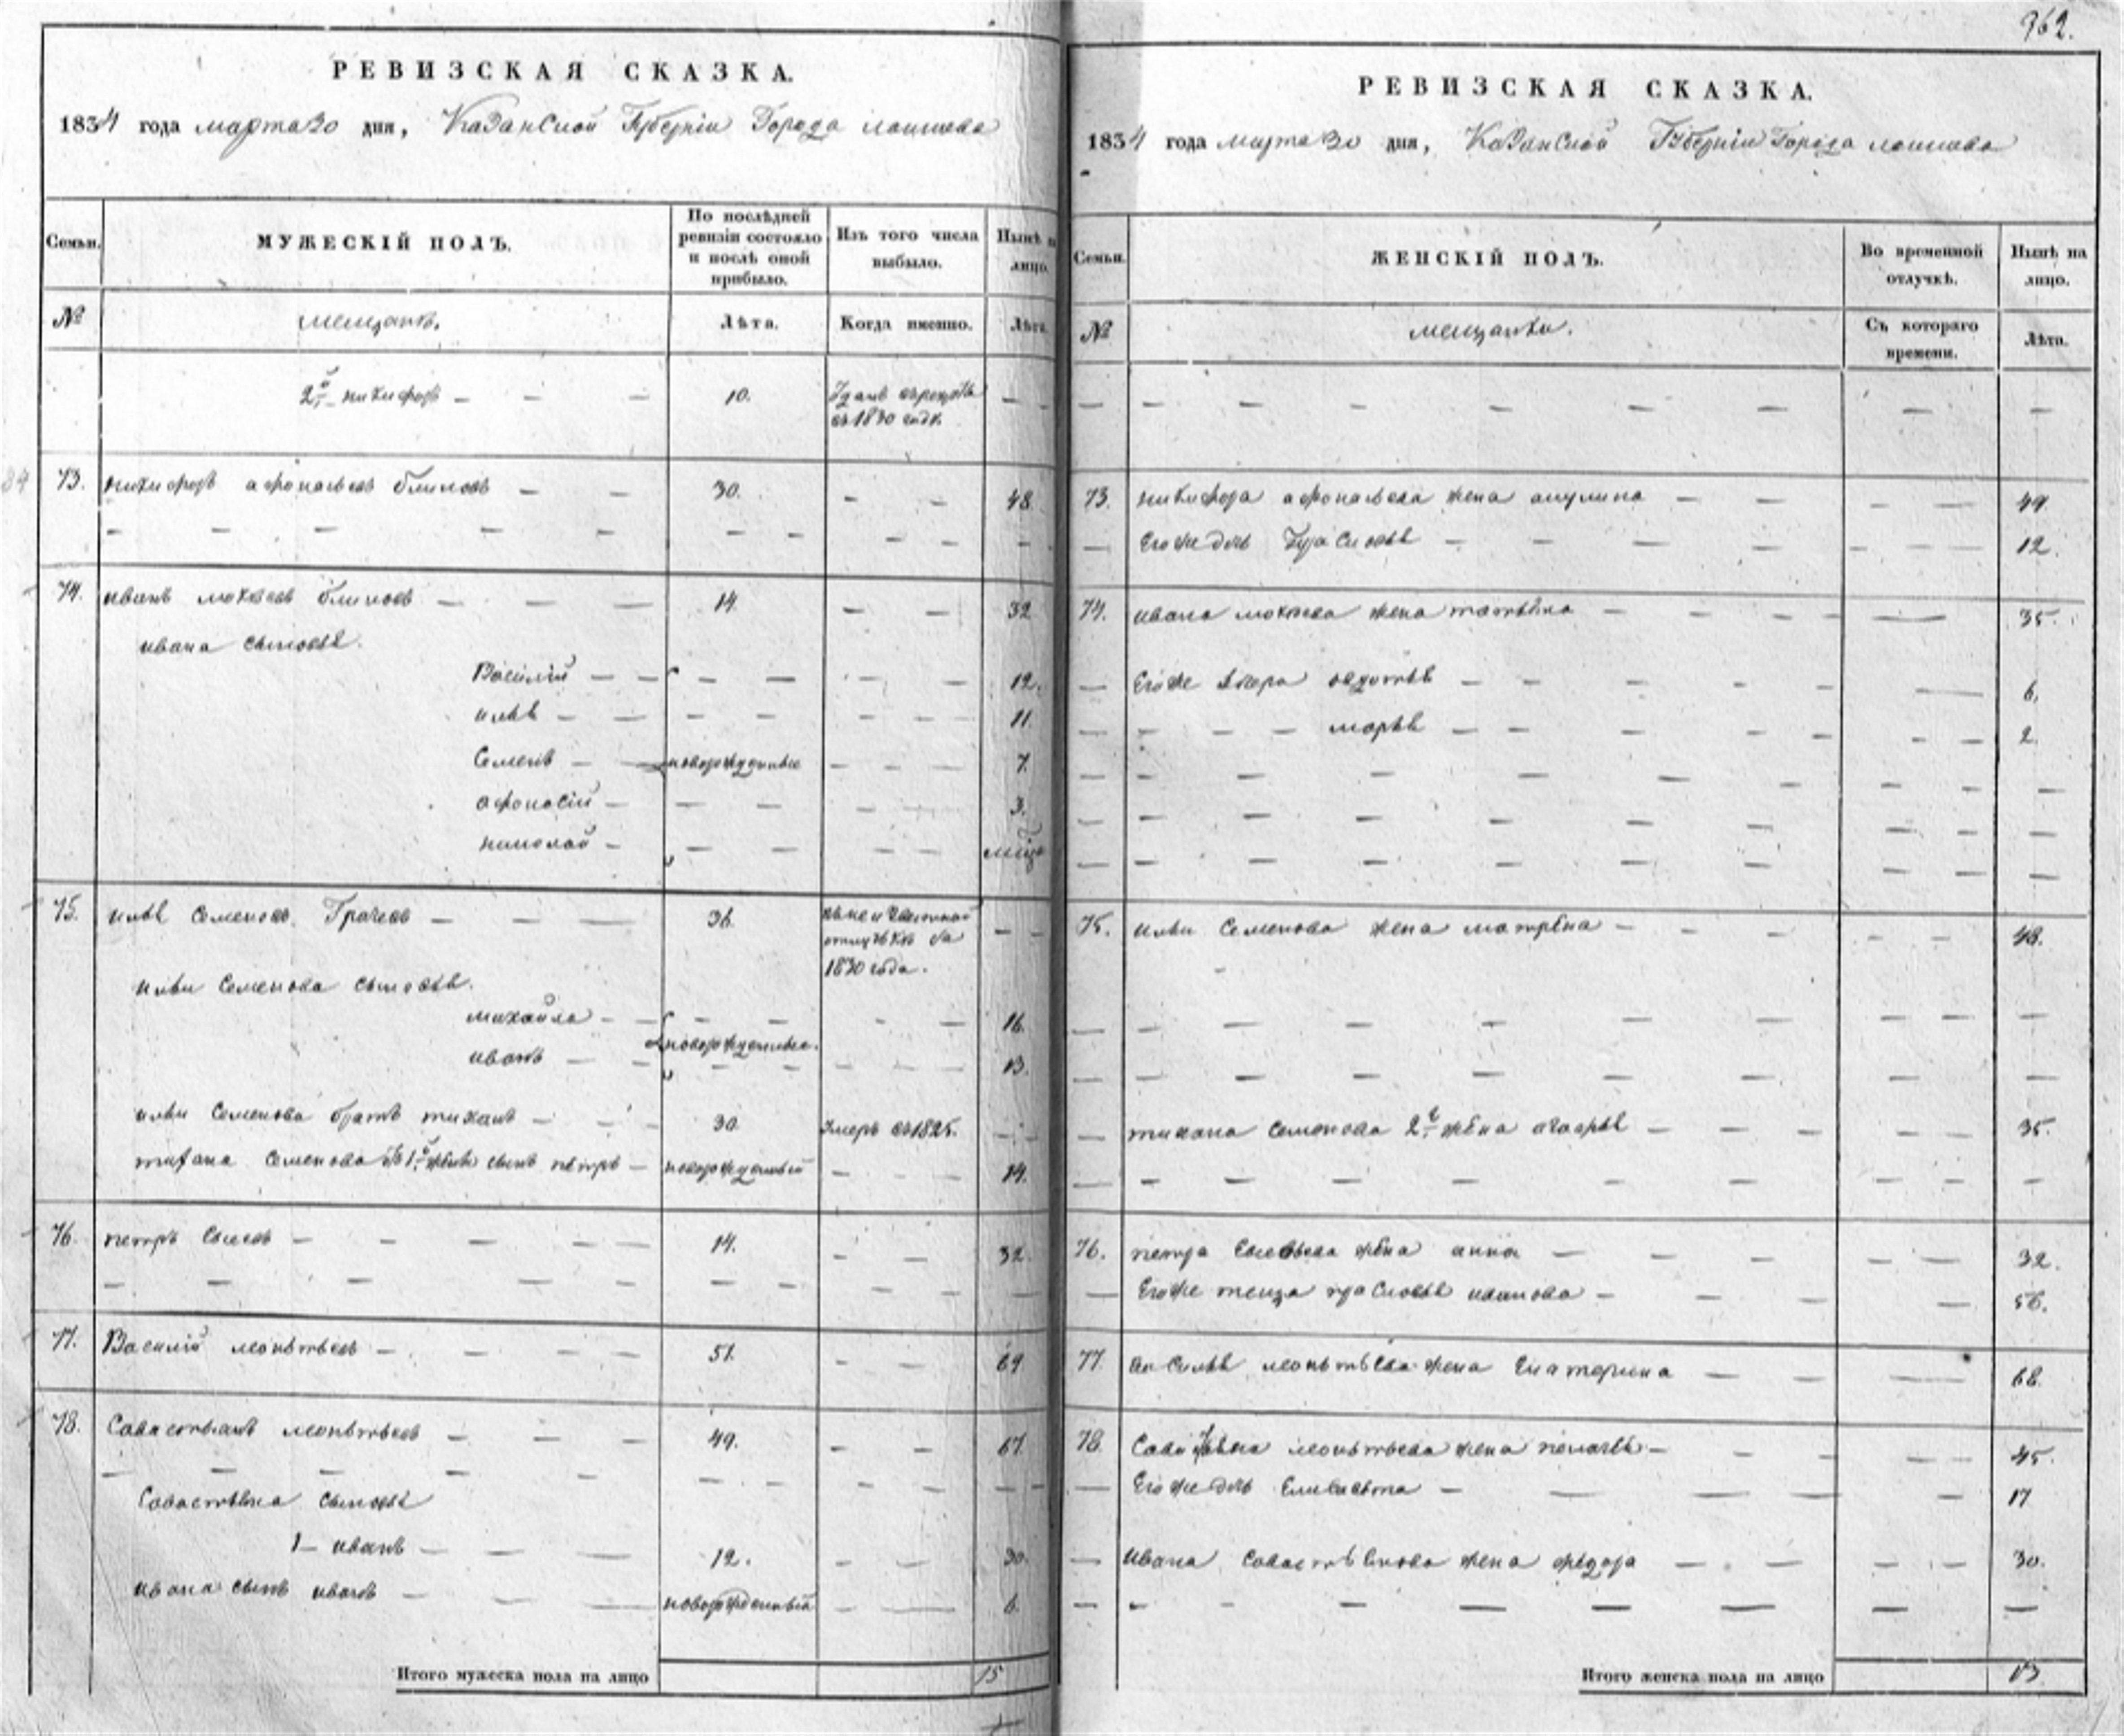 362.
РЕВИЗСКАЯ СКАЗКА.
1834 года марта 30 дня, Казанской Губерніи Города лаишева
Семьи. МУЖЕСКІЙ ПОЛЪ. По послѣдней ревизіи состояло и послѣ оной прибыло. Изъ того числа выбыло. Нынѣ на лицо.
№ мещанъ. Лѣта. Когда именно. Лѣта.
2й никифоръ — — — 10. въ 1830 годѣ. — —
73. никифоръ афонасьевъ блиновъ — — 30. — — 48.
74. иванъ мокѣевъ блиновъ — — — 14. — — 32
ивана сыновья.
Василій — — — — — — 12.
илья — — — — — — — 11.
Семенъ — — новорожденные — — — 7.
афонасій — — — — — — 3.
николай — — — — —
75. илья Семеновъ Грачевъ — — — 36. отлучкѣ съ 1830 года. — —
ильи Семенова сыновья.
михайла — — — — — — 16.
новорожденные.
иванъ — — — — — — — 13.
ильи Семенова братъ тихонъ — — — 30. Умеръ въ 1825. — —
Семенова 1й жены сынъ петръ — новорожденный — — — 14.
76. петръ — — — — — 14. — — 32.
77. Василій леонтьевъ — — — — 51. — — 69.
78. Савастьянъ леонтьевъ — — — 49. — — 67.
Савастьяна сыновья
1— иванъ — — — 12. — — 30.
ивана сынъ иванъ — — — новорожденный — — 6.
Итого мужеска пола на лицо 15
РЕВИЗСКАЯ СКАЗКА.
1834 года марта 30 дня, Казанской Губерніи Города лаишева
Семьи. ЖЕНСКІЙ ПОЛЪ. Во временной отлучкѣ. Нынѣ на лицо.
№ мещанки. Съ котораго времени. Лѣта.
73. никифора афонасьева жена акулина — — — — 49.
— Его же дочь — — — — — — — 12.
74. ивана мокѣева жена татьяна — — — — — 35.
— Его же дочери авдотья — — — — — 6.
— — — — марья — — — — — — — 2.
75. ильи Семенова жена матрена — — — — — 48.
— тихона семенова 2я жена агафья — — — — — 35.
76. петра жена анна — — — — — 32.
— Его же теща прасковья иванова — — — — 56.
77. василья леонтьева жена Екатерина — — — 68.
78. леонтьева жена пелагея — — — — — 45.
— Его же дочь Елисавета — — — — — 17
— Ивана Савастьянова жена федора — — — — — 30.
Итого женска пола на лицо 13